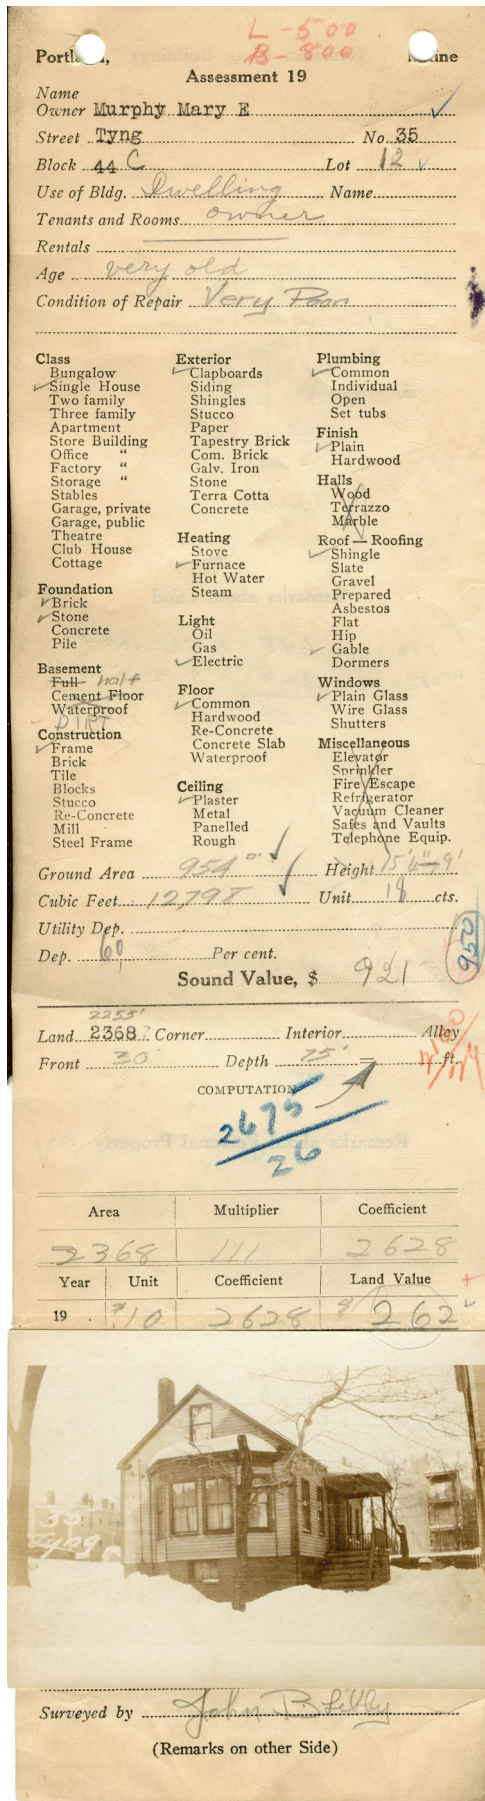 L-500
B-800
Portland, Maine
Assessment 19
Name
Owner Murphy Mary E
Street Tyng No. 35
Block 44 C Lot 12
Use of Bldg. Dwelling Name
Tenants and Rooms owner
Rentals
Age very old
Condition of Repair Very Poor
Class
Bungalow
Single House
Two family
Three family
Apartment
Store Building
Office "
Factory "
Storage "
Stables
Garage, private
Garage, public
Theatre
Club House
Cottage
Foundation
Brick
Stone
Concrete
Pile
Basement
Full half
Cement Floor
Waterproof
DIRT
Construction
Frame
Brick
Tile
Blocks
Stucco
Re-Concrete
Mill
Steel Frame
Exterior
Clapboards
Siding
Shingles
Stucco
Paper
Tapestry Brick
Com. Brick
Galv. Iron
Stone
Terra Cotta
Concrete
Heating
Stove
Furnace
Hot Water
Steam
Light
Oil
Gas
Electric
Floor
Common
Hardwood
Re-Concrete
Concrete Slab
Waterproof
Ceiling
Plaster
Metal
Panelled
Rough
Plumbing
Common
Individual
Open
Set tubs
Finish
Plain
Hardwood
Halls
Wood
Terrazzo
Marble
Roof — Roofing
Shingle
Slate
Gravel
Prepared
Asbestos
Flat
Hip
Gable
Dormers
Windows
Plain Glass
Wire Glass
Shutters
Miscellaneous
Elevator
Sprinkler
Fire Escape
Refrigerator
Vacuum Cleaner
Safes and Vaults
Telephone Equip.
Ground Area 954 Height
Cubic Feet 12,798 Unit 18 cts.
Utility Dep.
Dep. 60 Per cent.
950
Sound Value, $ 921
2255'
Land 2368 Corner Interior Alley
Front 30 Depth 75' = ft.
COMPUTATION
2675
26
Area Multiplier Coefficient
2368 111 2628
Year Unit Coefficient Land Value
19 .10 2628 $ 262
35
Tyng
Surveyed by John B Libby
(Remarks on other Side)